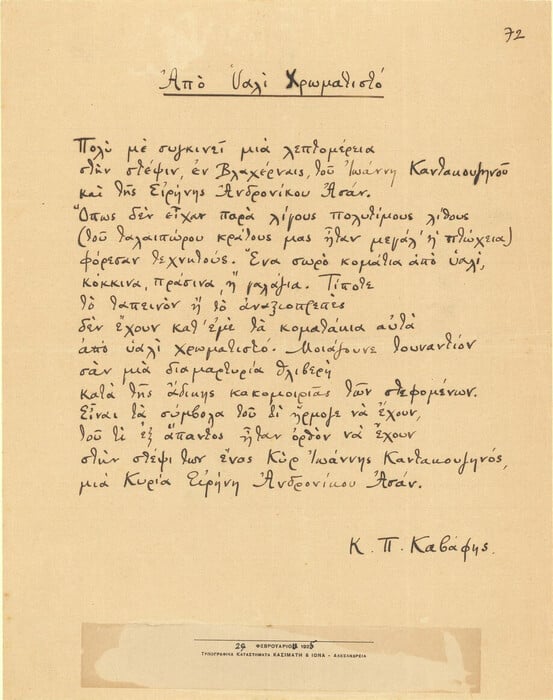 72
Ἀπὸ Ὑαλὶ Χρωματιστό
Πολὺ μὲ συγκινεῖ μιὰ λεπτομέρεια
στὴν στέψιν, ἐν Βλαχέρναις, τοῦ Ἰωάννη Καντακουζηνοῦ
καὶ τῆς Εἰρήνης Ἀνδρονίκου Ἀσάν.
Ὅπως δὲν εἶχαν παρὰ λίγους πολυτίμους λίθους
(τοῦ ταλαιπώρου κράτους μας ἦταν μεγάλ' ἡ πτώχεια)
φόρεσαν τεχνητούς. Ἕνα σωρὸ κομάτια ἀπὸ ὑαλί,
κόκκινα, πράσινα, ἢ γαλάζια. Τίποτε
τὸ ταπεινὸν ἢ τὸ ἀναξιοπρεπὲς
δὲν ἔχουν κατ' ἐμὲ τὰ κοματάκια αὐτὰ
ἀπὸ ὑαλὶ χρωματιστό. Μοιάζουνε τουναντίον
σὰν μιὰ διαμαρτυρία θλιβερὴ
κατὰ τῆς ἄδικης κακομοιριᾶς τῶν στεφομένων.
Εἶναι τὰ σύμβολα τοῦ τί ἥρμοζε νὰ ἔχουν,
τοῦ τί ἐξ ἅπαντος ἦταν ὀρθὸν νὰ ἔχουν
στὴν στέψι των ἕνας Κὺρ Ἰωάννης Καντακουζηνός,
μιὰ Κυρία Εἰρήνη Ἀνδρονίκου Ἀσάν.
Κ. Π. Καβάφης.
ΦΕΒΡΟΥΑΡΙΟΥ 1925
ΤΥΠΟΓΡΑΦΙΚΑ ΚΑΤΑΣΤΗΜΑΤΑ ΚΑΣΙΜΑΤΗ & ΙΩΝΑ – ΑΛΕΞΑΝΔΡΕΙΑ